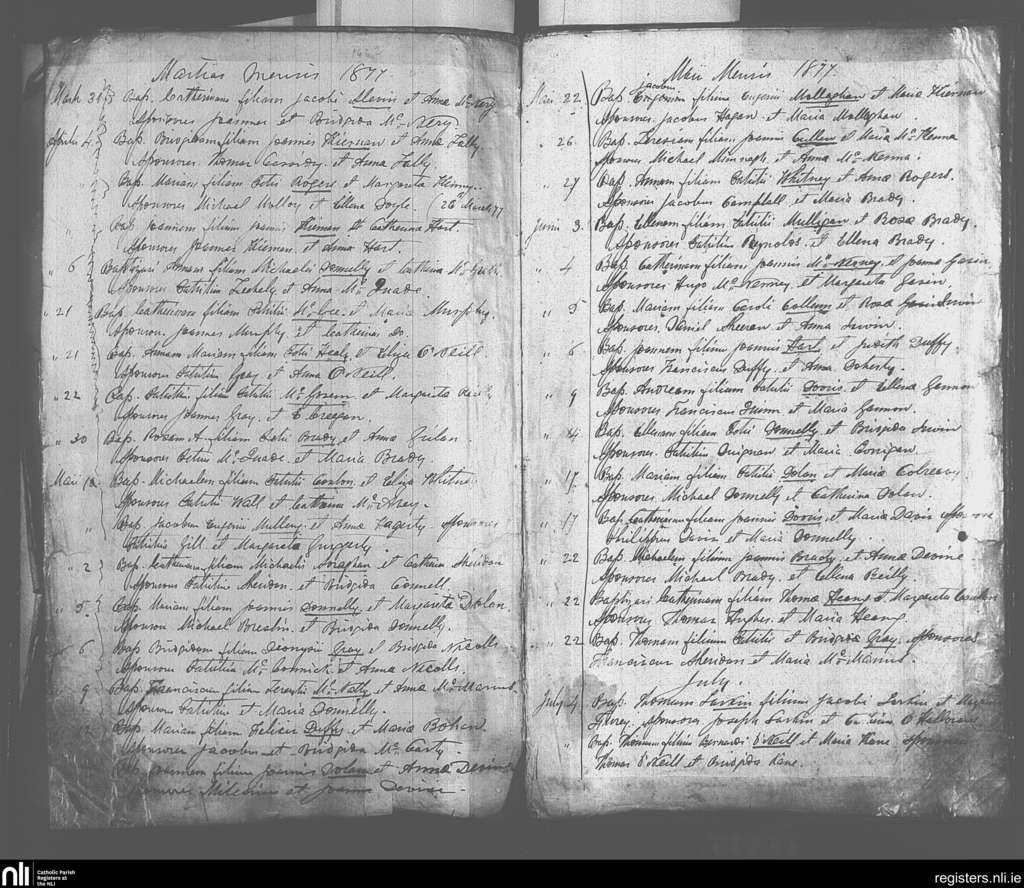 Martias Mensis 1877.
March 31 Bap. Catherinam filiam Jacobi et Anna
Sponsores Joannes et Brigida Mc
Aprilis 4 Bap. Brigidam filiam Joannes Kiernan et Anna Lally
Sponsores Thomas Cassidy et Anna Lally
Bap. Mariam filiam Petri Rogers et Margarita
Sponsores Michael Molloy et Ellena Doyle. (26th March 77
Bap. Joannem filium Joannis Kiernan et Catherina Hart.
Sponsores Joannes Kiernan et Anna Hart.
" 6 Baptizavi Annam filiam Michaelis Donnelly et Catherina
Sponsores Patritius et Anna Mc Quade.
" 21 Bap. Catherinam filiam Patritii Mc Cree et Maria Murphy.
Sponsores Joannes Murphy et Catherina Do
" 21 Bap. Annam Mariam filiam Petri Healy et Eliza O'Neill
Sponsores Patritius Gray et Anna O'Neill.
" 22 Bap. Patritium filium Patritii Mc et Margarita Reilly
Sponsores Joannes Gray. et E Cregan.
" 30 Bap. Rosam A filiam Petri Brady et Anna
Sponsores Petrus Mc Quade. et Maria Brady.
Maii 1 Bap. Michaelem filium Patritii Conlon et Eliza
Sponsores Patritius Wall et Catherina
" Bap. Jacobum Eugenii Mulleny et Anna Fagerty Sponsores
Patritius Gill. et Margarita
" 2 Bap. Catherinam filiam Michaelis et Catherina Sheridan
Sponsores Patritius Sheridan. et Brigida Connell.
" 5 Bap. Mariam filiam Joannis Donnelly et Margarita Dolan.
Sponsores Michael Breslin. et Brigida Donnelly.
6 Bap. Brigidam filiam Dionysii Gray. et Brigida
Sponsores Patritius Mc Cormick et Anna
9 Bap. Franciscum filium Terentii Mc Nally et Anna McManus.
Sponsores Patritius et Maria Donnelly.
Bap. Mariam filiam Felicis Duffy et Maria Bohan
Sponsores Jacobus et Brigida Mc Carty
Bap. Joannem filium Joannis Dolan et Anna Devine
Sponsores et Joanna Devine.
Maii Mensis 1877.
Maii 22. Bap. Jacobum Eugenium filium Eugenii Mullaghan et Maria Kiernan
Sponsores. Jacobus Hagan. et Maria Mullaghan.
" 26. Bap. Teresiam filiam Joannis Cullen et Maria Mc Kenna
Sponsores Michael et Anna Mc Kenna.
" 27 Bap. Annam filiam Patritii Whitney et Anna Rogers.
Sponsores Jacobus Campbell et Maria Brady.
Junii 3. Bap. Ellenam filiam Patritii Mulligan et Rosa Brady.
Sponsores Patritius Reynolds. et Ellena Brady.
" 4 Bap. Catherinam filiam Joannis et Joanna Gavin
Sponsores Hugo et Margarita Gavin
" 5 Bap. Mariam filiam Caroli Callery et Rosa Irwin
Sponsores. Daniel Sheeran et Anna Irwin.
" 6 Bap. Joannem filium Joannis Hart. et Judith Duffy.
Sponsores Franciscus Duffy. et Anna Doherty.
" 9 Bap. Andream filium Patritii Dorris. et Ellena Gannon
Sponsores Franciscus Quinn et Maria Gannon.
" 14 Bap. Ellenam filiam Petri Donnelly et Brigida Irwin
Sponsores. Patritius Quignan et Maria Corrigan.
" 17. Bap. Mariam filiam Patritii Dolan et Maria
Sponsores. Michael Donnelly et Catherina Dolan.
" 17 Bap. Catherinam filiam Joannis Dorris. et Maria Davis Sponsores
Philippus Davis et Maria Donnelly.
22 Bap. Michaelem filium Joannis Brady et Anna Devine
Sponsores Michael Brady. et Ellena Reilly
" 22 Baptizavi Catherinam filiam Thoma Heany et Margarita
Sponsores Thomas Hughes. et Maria Heany.
" 22 Bap. Thomam filium Patritii et Brigida Gray. Sponsores
Franciscus Sheridan et Maria McManus.
July.
July 4 Bap. Thomam Larkin filium Jacobi Larkin et
Sponsores Joseph Larkin et O'Halloran
" Bap. Thomam filium Bernardi O'Neill et Maria Kane.
Thomas O'Neill et Brigida Kane.
nli Catholic Parish
Registers at
the NLI
registers.nli.ie